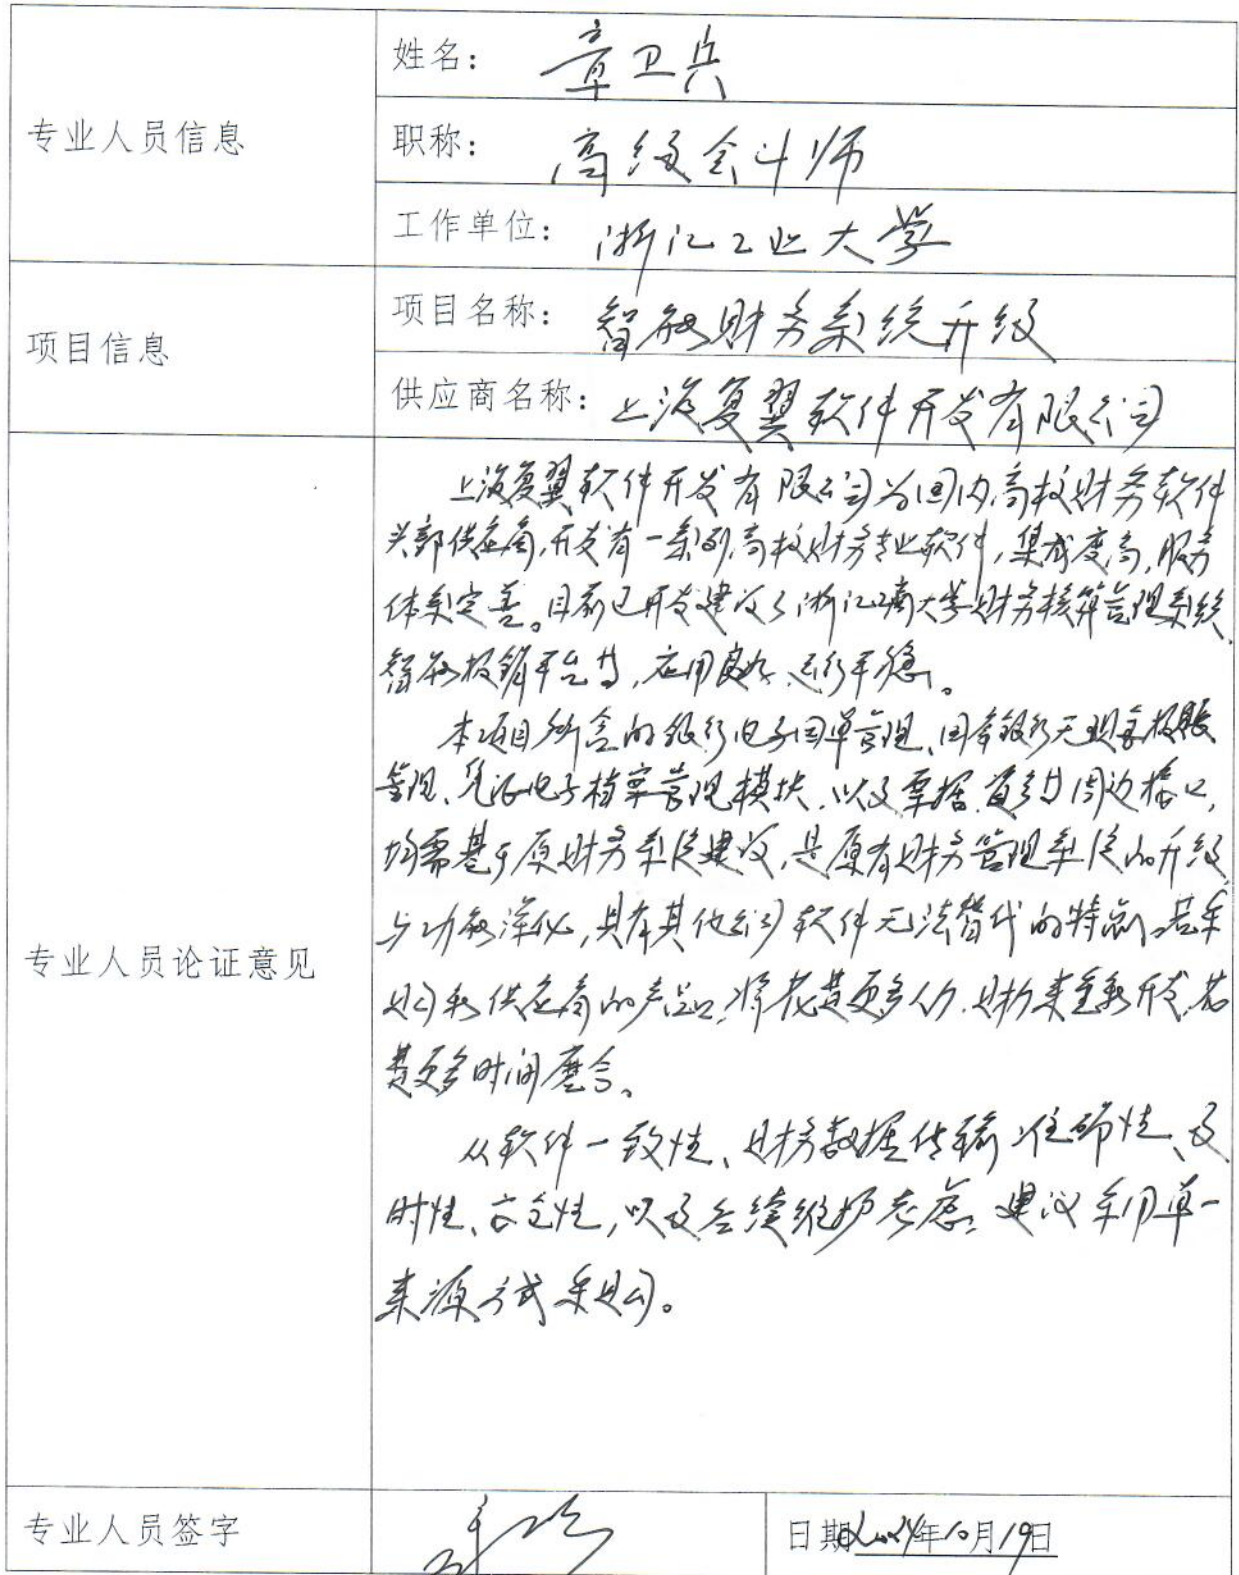 专业人员信息
姓名： 章卫兵
职称： 高级会计师
工作单位： 浙江工业大学
项目信息
项目名称： 智能财务系统升级
供应商名称： 上海复翼软件开发有限公司
专业人员论证意见
上海复翼软件开发有限公司为国内高校财务软件
头部供应商,开发有一系列高校财务专业软件,集成度高,服务
体系完善。目前已开发建设了浙江工商大学财务核算管理系统、
智能报销平台等,应用良好、运行平稳。
本项目所含的银行电子回单管理、国库银行无现金报账
管理、凭证电子档案管理模块,以及票据、首钢等周边接口,
均需基于原财务系统建设,是原有财务管理系统的升级
与功能深化,具有其他公司软件无法替代的特点。若采
购新供应商的产品,将花费更多人力、财力来重新开发,花
费更多时间磨合。
从软件一致性、财务数据传输准确性、及
时性、安全性,以及后续维护考虑,建议采用单一
来源方式采购。
专业人员签字
日期 2024年10月19日